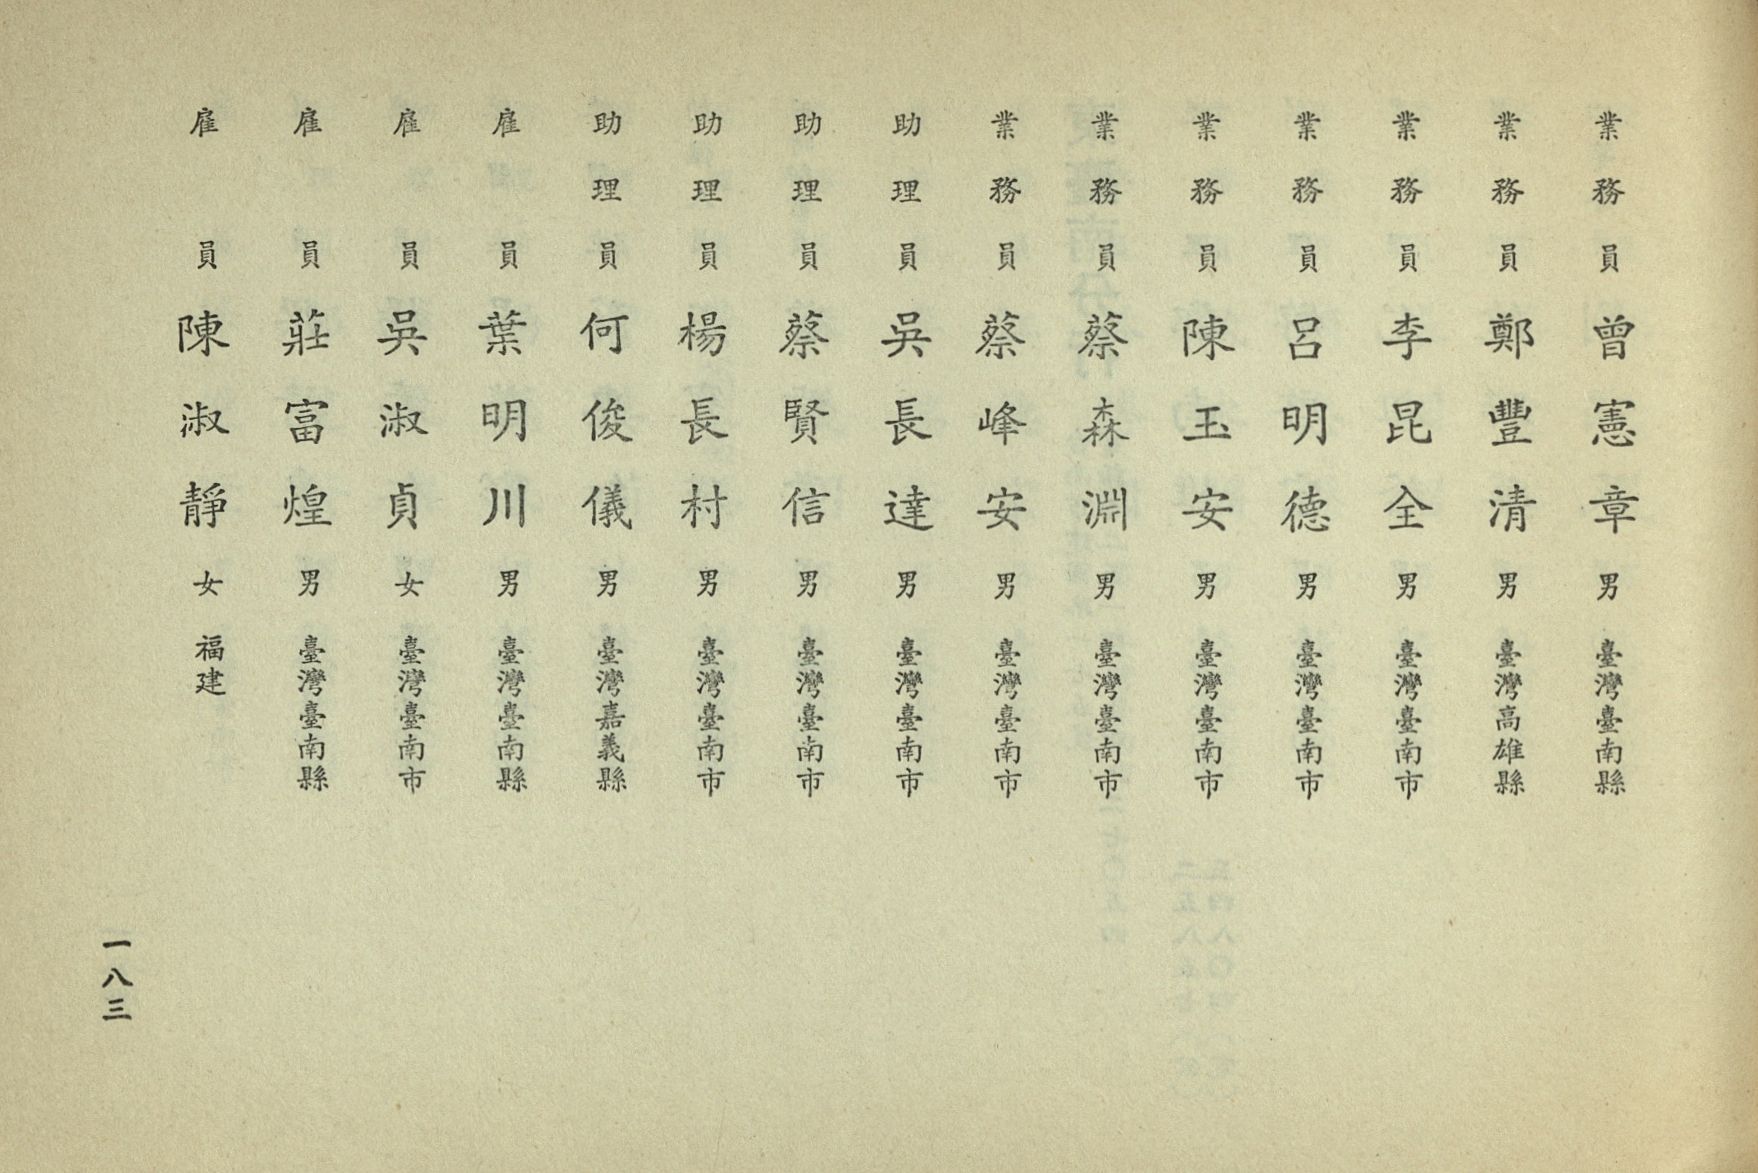 業務員曾憲章男臺灣臺南縣
業務員鄭豐清男臺灣高雄縣
業務員李昆全男臺灣臺南市
業務員呂明德男臺灣臺南市
業務員陳玉安男臺灣臺南市
業務員蔡森淵男臺灣臺南市
業務員蔡峰安男臺灣臺南市
助理員吳長達男臺灣臺南市
助理員蔡賢信男臺灣臺南市
助理員楊長村男臺灣臺南市
助理員何俊儀男臺灣嘉義縣
雇員葉明川男臺灣臺南縣
雇員吳淑貞女臺灣臺南市
雇員莊富煌男臺灣臺南縣
雇員陳淑靜女福建
一八三